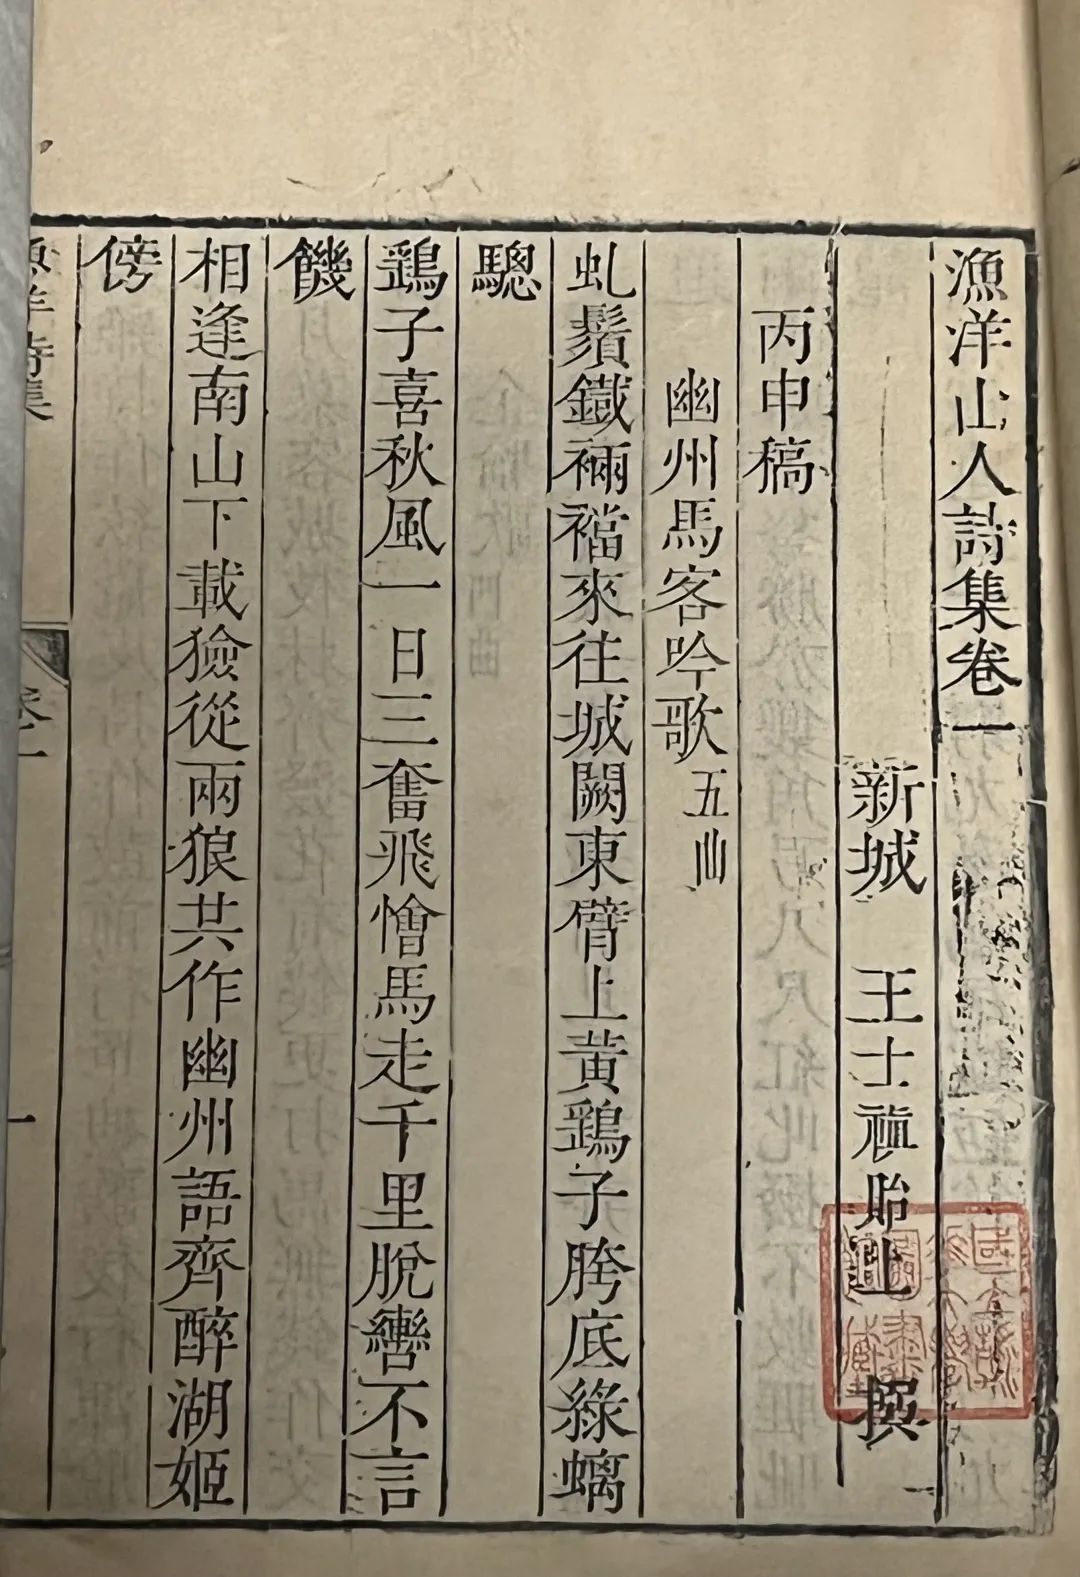 漁洋山人詩集卷一
新城 王士禛貽上 撰
丙申稿
幽州馬客吟歌五曲
虬鬚鐵裲襠來往城闕東臂上黃鷂子胯底綠螭
驄
鷂子喜秋風一日三奮飛懀馬走千里脫轡不言
饑
相逢南山下載獫從兩狼共作幽州語齊醉湖姬
傍
漁洋詩集
卷一
一